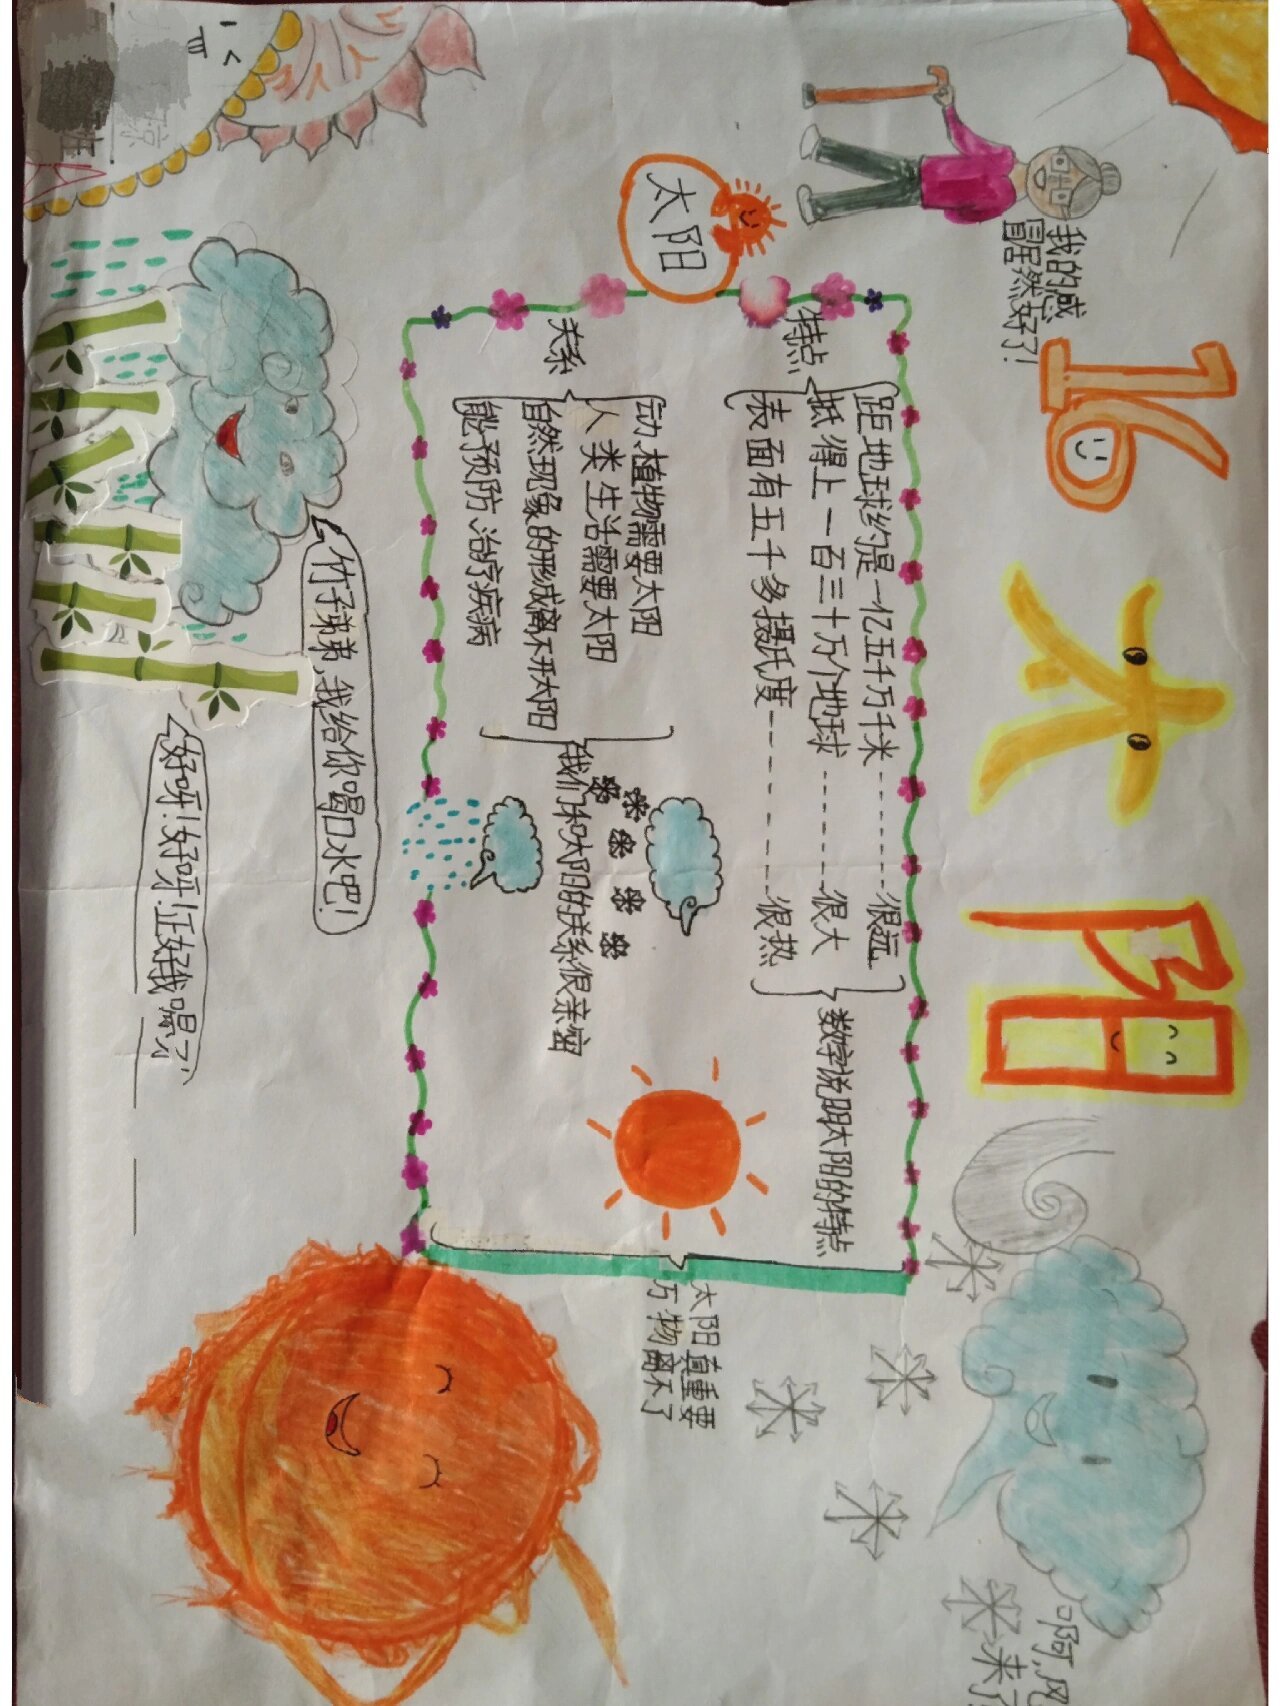 16
太阳
我的感
冒居然好了!
太阳
特点
距地球约是一亿五千万千米------很远
抵得上一百三十万个地球------很大
表面有五千多摄氏度------很热
数字说明太阳的特点
关系
动、植物需要太阳
人类生活需要太阳
自然现象的形成离不开太阳
能预防、治疗疾病
我们和太阳的关系很亲密
太阳真重要
万物离不了
啊,风
来了
竹子弟弟,我给你喝口水吧!
好呀!好呀!正好我渴了
班